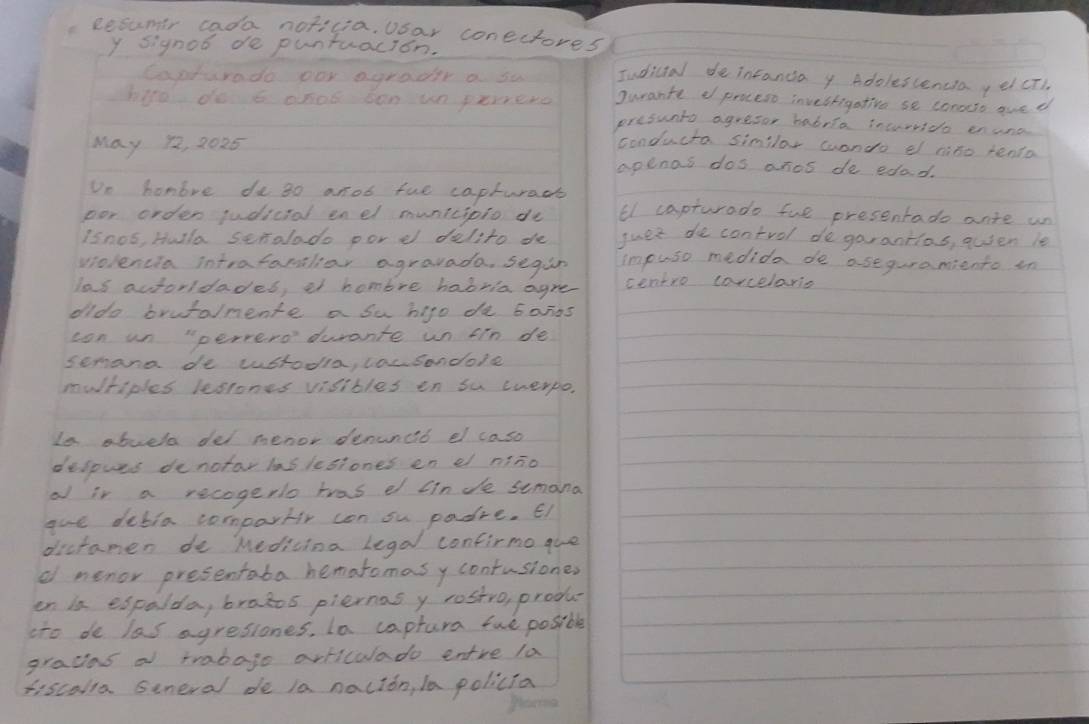 Resumir cada noticia. Usar conectores
y signos de puntuación.
Capturado por agredir a su
hijo de 6 años con un perrero
May 12, 2025
Un hombre de 30 años fue capturado
por orden judicial en el municipio de
Isnos, Huila señalado por el delito de
violencia intrafamiliar agravada. según
las autoridades, el hombre habría agre
dido brutalmente a su hijo de 6 años
con un "perrero" durante un fin de
semana de custodia, causandole
multiples lesiones visibles en su cuerpo.
La abuela del menor denunció el caso
despues de notar las lesiones en el niño
al ir a recogerlo tras el fin de semana
que debía compartir con su padre. El
dictamen de Medicina Legal confirmo que
el menor presentaba hematomas y contusiones
en la espalda, brazos piernas y rostro, produ-
cto de las agresiones. La captura fue posible
gracias al trabajo articulado entre la
fiscalia General de la nación, la policia
Judicial de infancia y Adolescencia y el CTI.
Durante el proceso investigativo se conocio que el
presunto agresor habría incurrido en una
conducta similar cuando el niño tenía
apenas dos años de edad.
El capturado fue presentado ante un
juez de control de garantías, quien le
impuso medida de aseguramiento en
centro carcelario
Norma